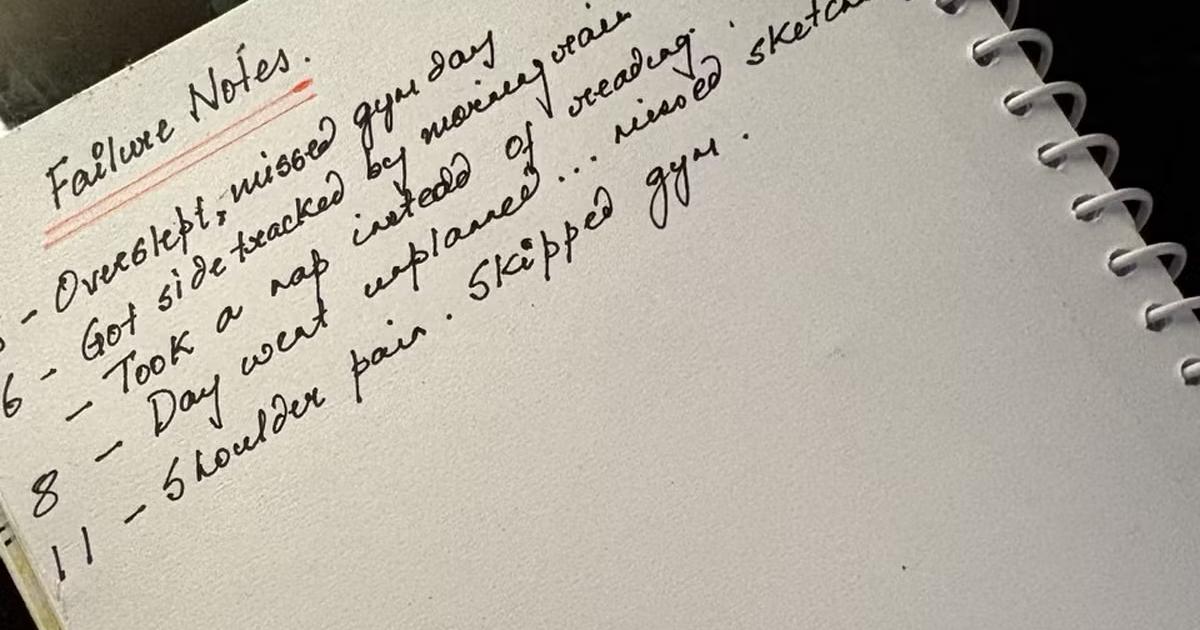 Failure Notes.
- Overslept, missed gym day
6 - Got sidetracked by morning rain
- Took a nap instead of reading.
8 - Day went unplanned... missed
11 - Shoulder pain. Skipped gym.